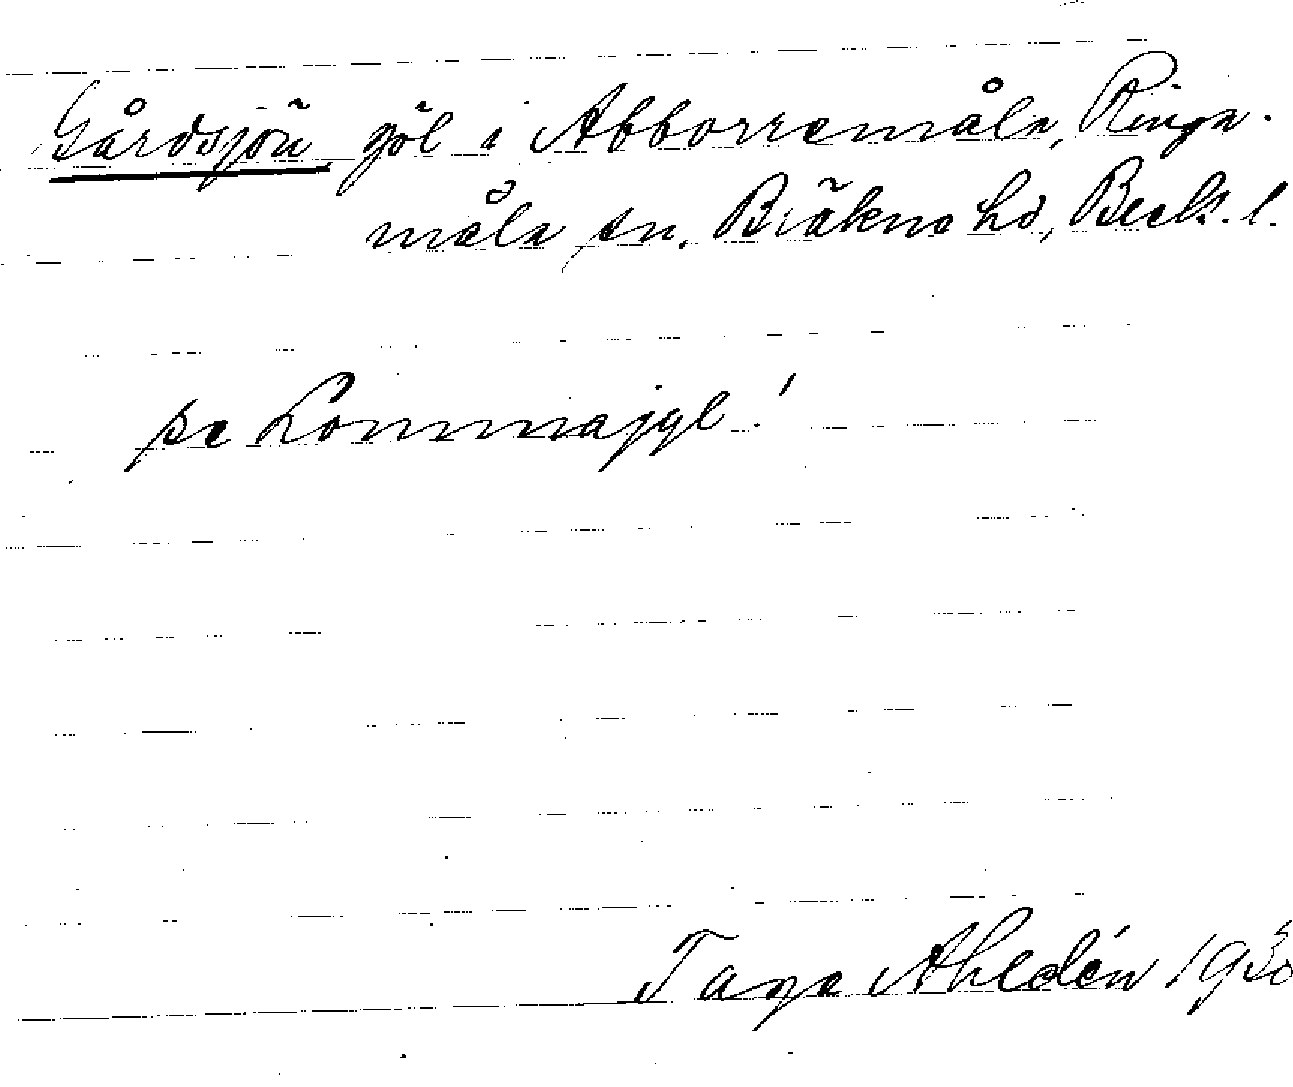 Gårdsjön göl i Abborremåla, Ringa-
måla sn, Bräkne hd, Blek. l.
se Lommajyl!
Tage Ahldén 1930